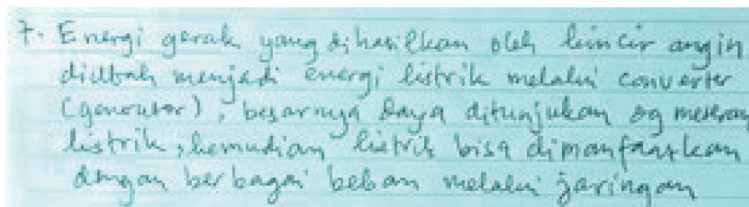 7. Energi gerak yang dihasilkan oleh kincir angin
diubah menjadi energi listrik melalui converter
(generator), besarnya daya ditunjukan dg meteran
listrik, kemudian listrik bisa dimanfaatkan
dengan berbagai beban melalui jaringan